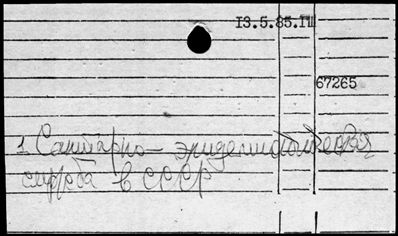 13.5.85.ГШ
67265
1 Санитарно - эпидемиологическая
служба в СССР